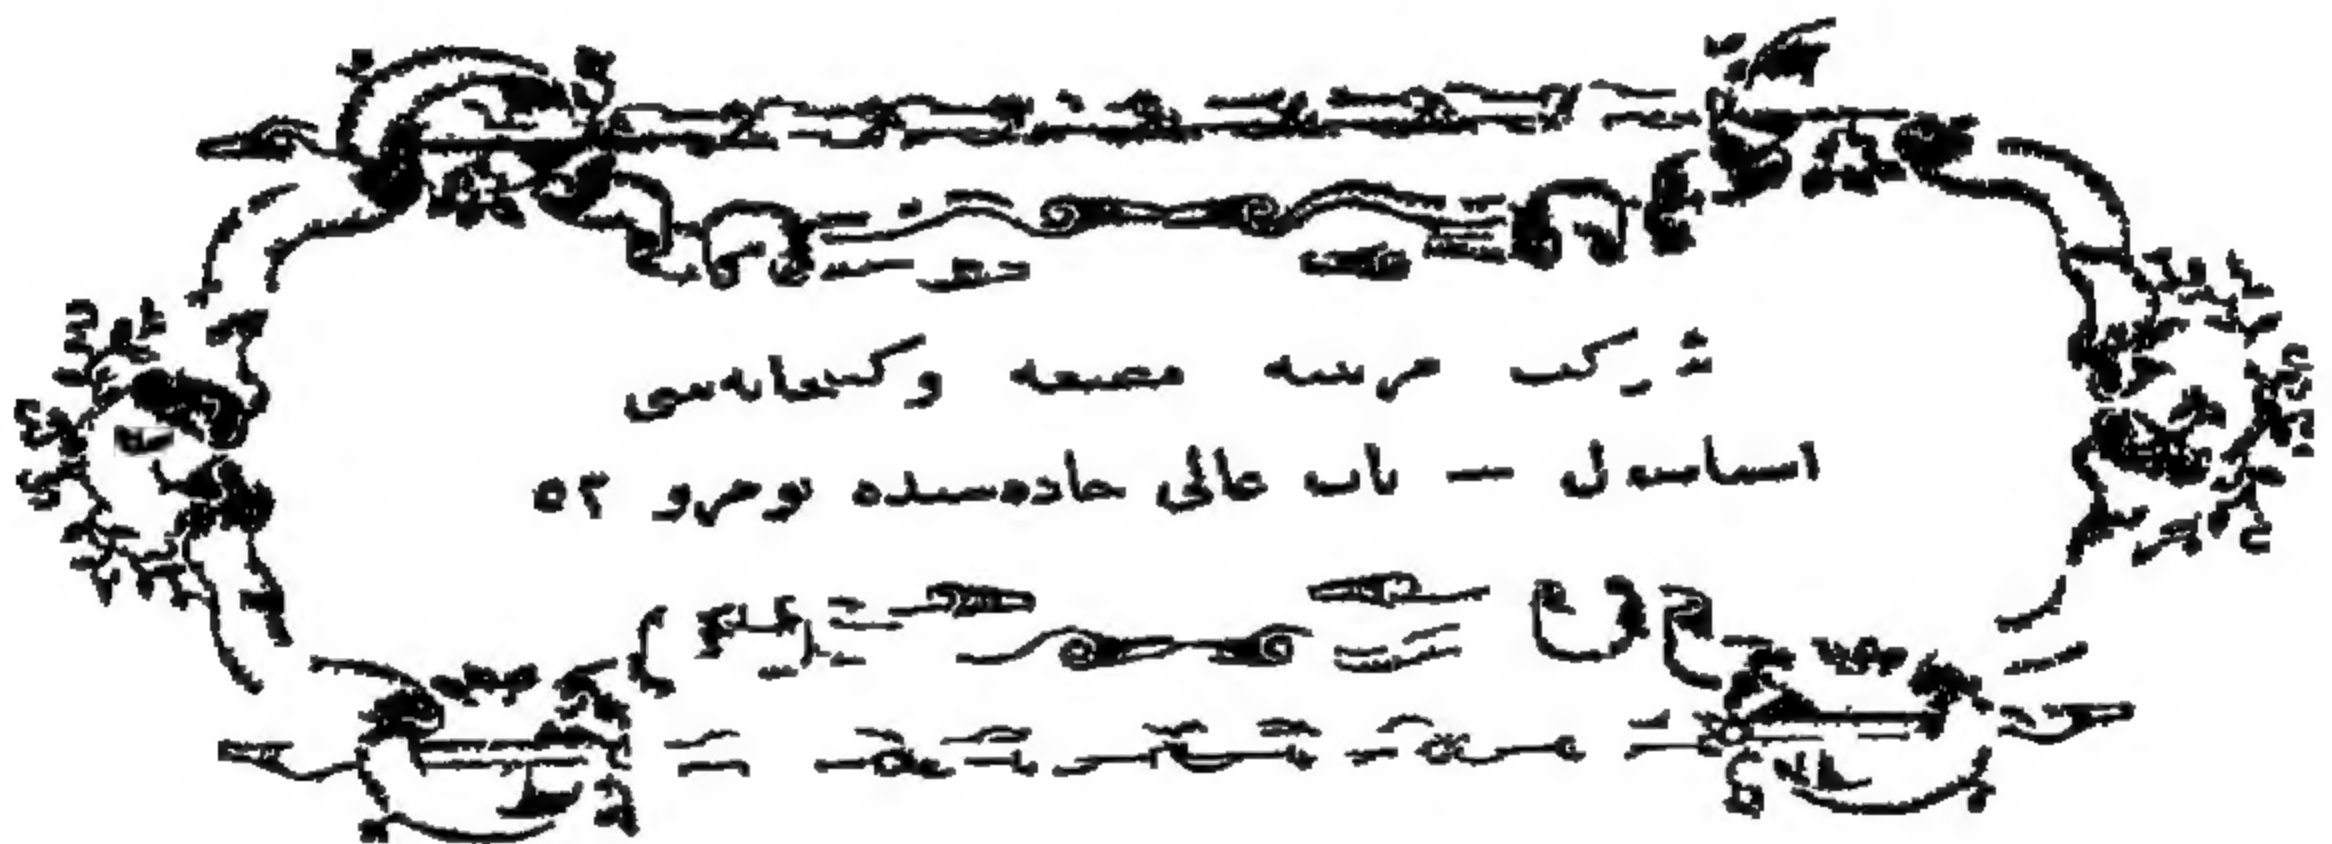 شركت مرتبيه مطبعه وكتبخانه‌سى
استانبول — باب عالى جاده‌سنده نومرو ٥٢